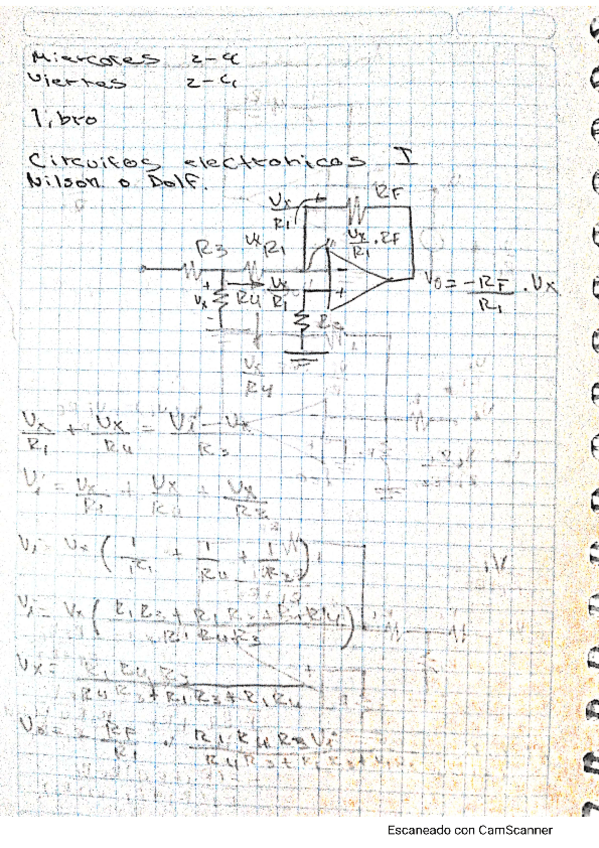 Miercoles 2-4
Viernes 2-4
libro
Circuitos electronicos I
Nilson o Dolf.
Vx/R1
RF
Vx/R1 . RF
R3
Vx
R1
Vx
R4
Vx/R1
Vo = -RF/R1 . Vx
Vx/R4
Vx/R1 + Vx/R4 = Vi - Vx/R3
Vi = Vx/R1 + Vx/R4 + Vx/R3
Vi = Vx (1/R1 + 1/R4 + 1/R3)
Vi = Vx (
R1 R4 R3
Vx = R1 R4 R3
R4 R3 + R1 R3 + R1 R4
Vo = - RF/R1 . R1 R4 R3 Vi
Escaneado con CamScanner